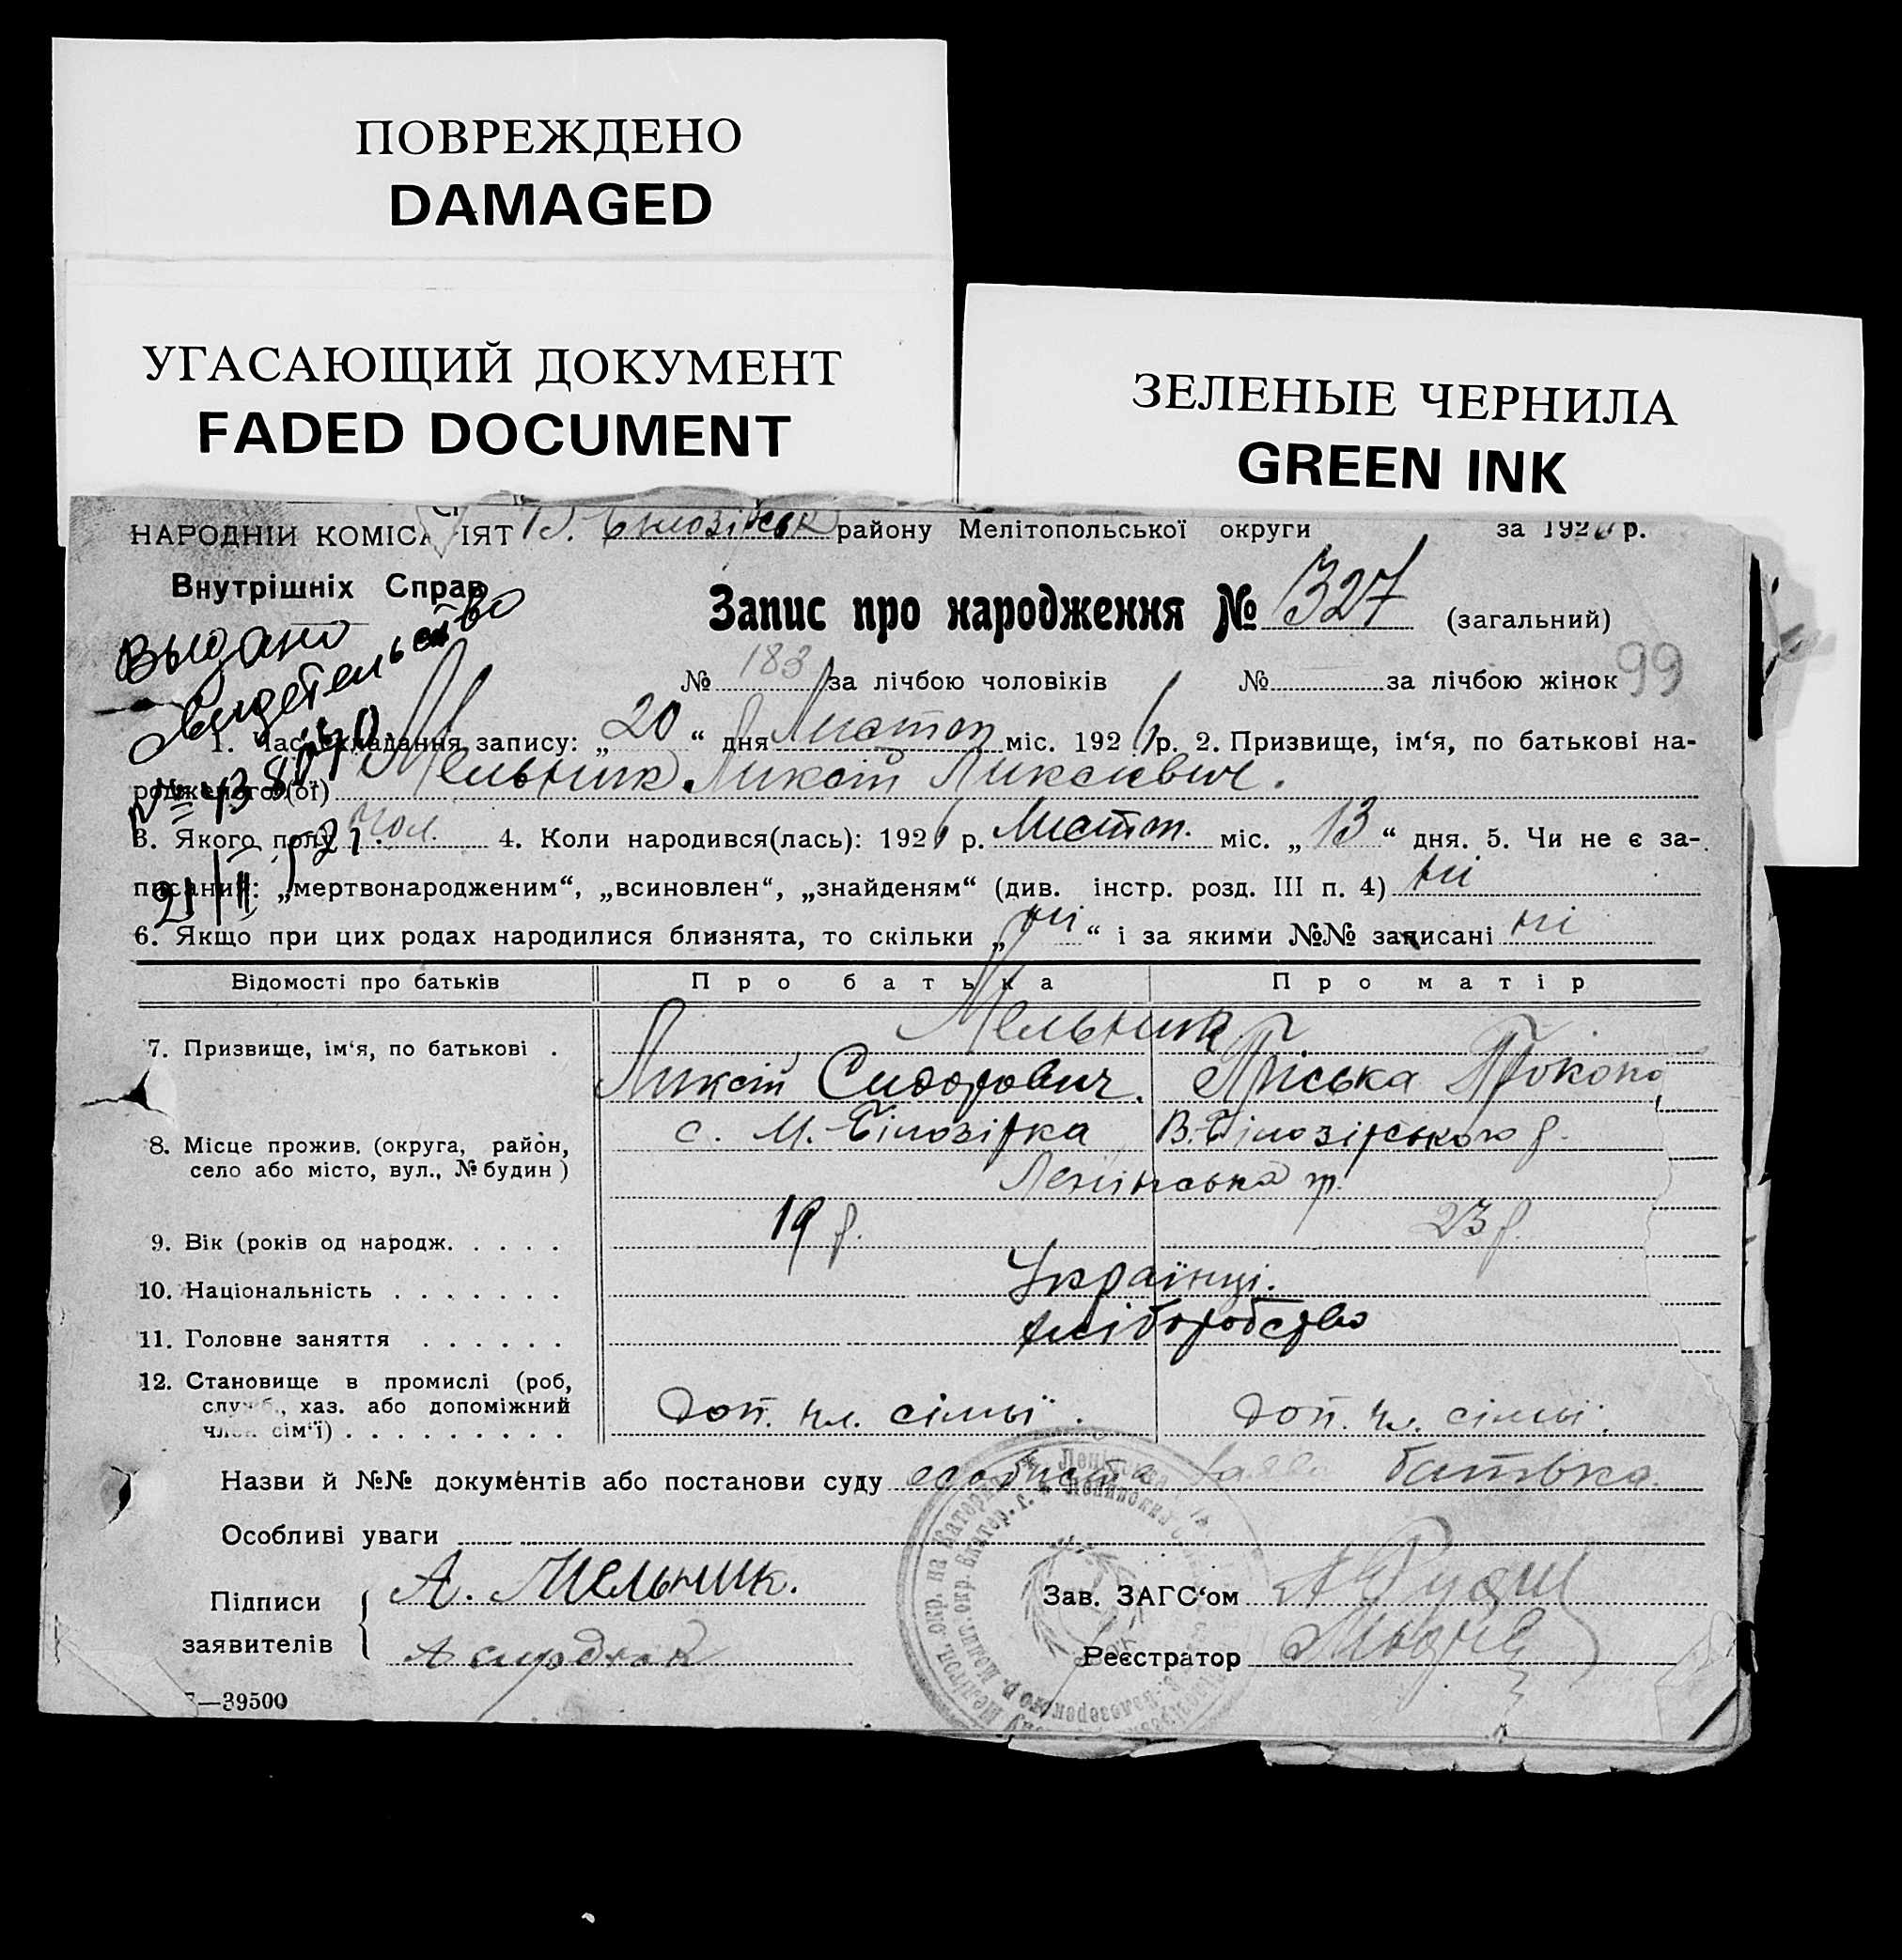 ПОВРЕЖДЕНО
DAMAGED
УГАСАЮЩИЙ ДОКУМЕНТ
FADED DOCUMENT
ЗЕЛЕНЫЕ ЧЕРНИЛА
GREEN INK
району Мелітопольської округи за 192 р.
НАРОДНІЙ КОМІС ІЯТ
Внутрішніх Справ
Запис про народження № 327 (загальний)
Выдано свидетельство
№ 183 за лічбою чоловіків № за лічбою жінок 99
1. Час складання запису: „20“ дня Листоп міс. 192 р. 2. Призвище, ім‘я, по батькові на-
родженого(ої) Мельник
3. Якого полу Чол. 4. Коли народився(лась): 192 р. Листоп. міс. „13“ дня. 5. Чи не є за-
писаний: „мертвонародженим“, „всиновлен“, „знайденям“ (див. інстр. розд. III п. 4) ні
6. Якщо при цих родах народилися близнята, то скільки „ні“ і за якими №№ записані ні
Відомості про батьків Про батька Про матір
7. Призвище, ім‘я, по батькові . Мельник
Сидорович. Пріська
8. Місце прожив. (округа, район, с. М.-Білозірка В.-Білозірського р.
село або місто, вул., № будин) Ленінська
9. Вік (років од народж. . . . . 19 р. 23 р.
10. Національність . . . . . . . Українці.
11. Головне заняття . . . . . . хліборобство
12. Становище в промислі (роб,
служб., хаз. або допоміжний доп. чл. сімьї. доп. чл. сімьї.
член сім‘ї) . . . . . . . . .
Назви й №№ документів або постанови суду особиста заява батька.
Особливі уваги
Підписи заявителів А. Мельник.
Зав. ЗАГС‘ом
Реєстратор
—39500